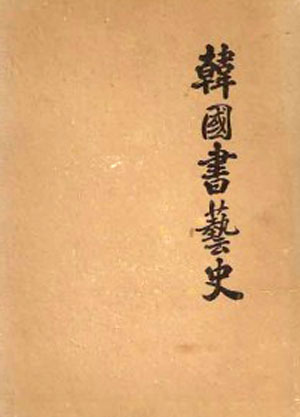 韓國書藝史